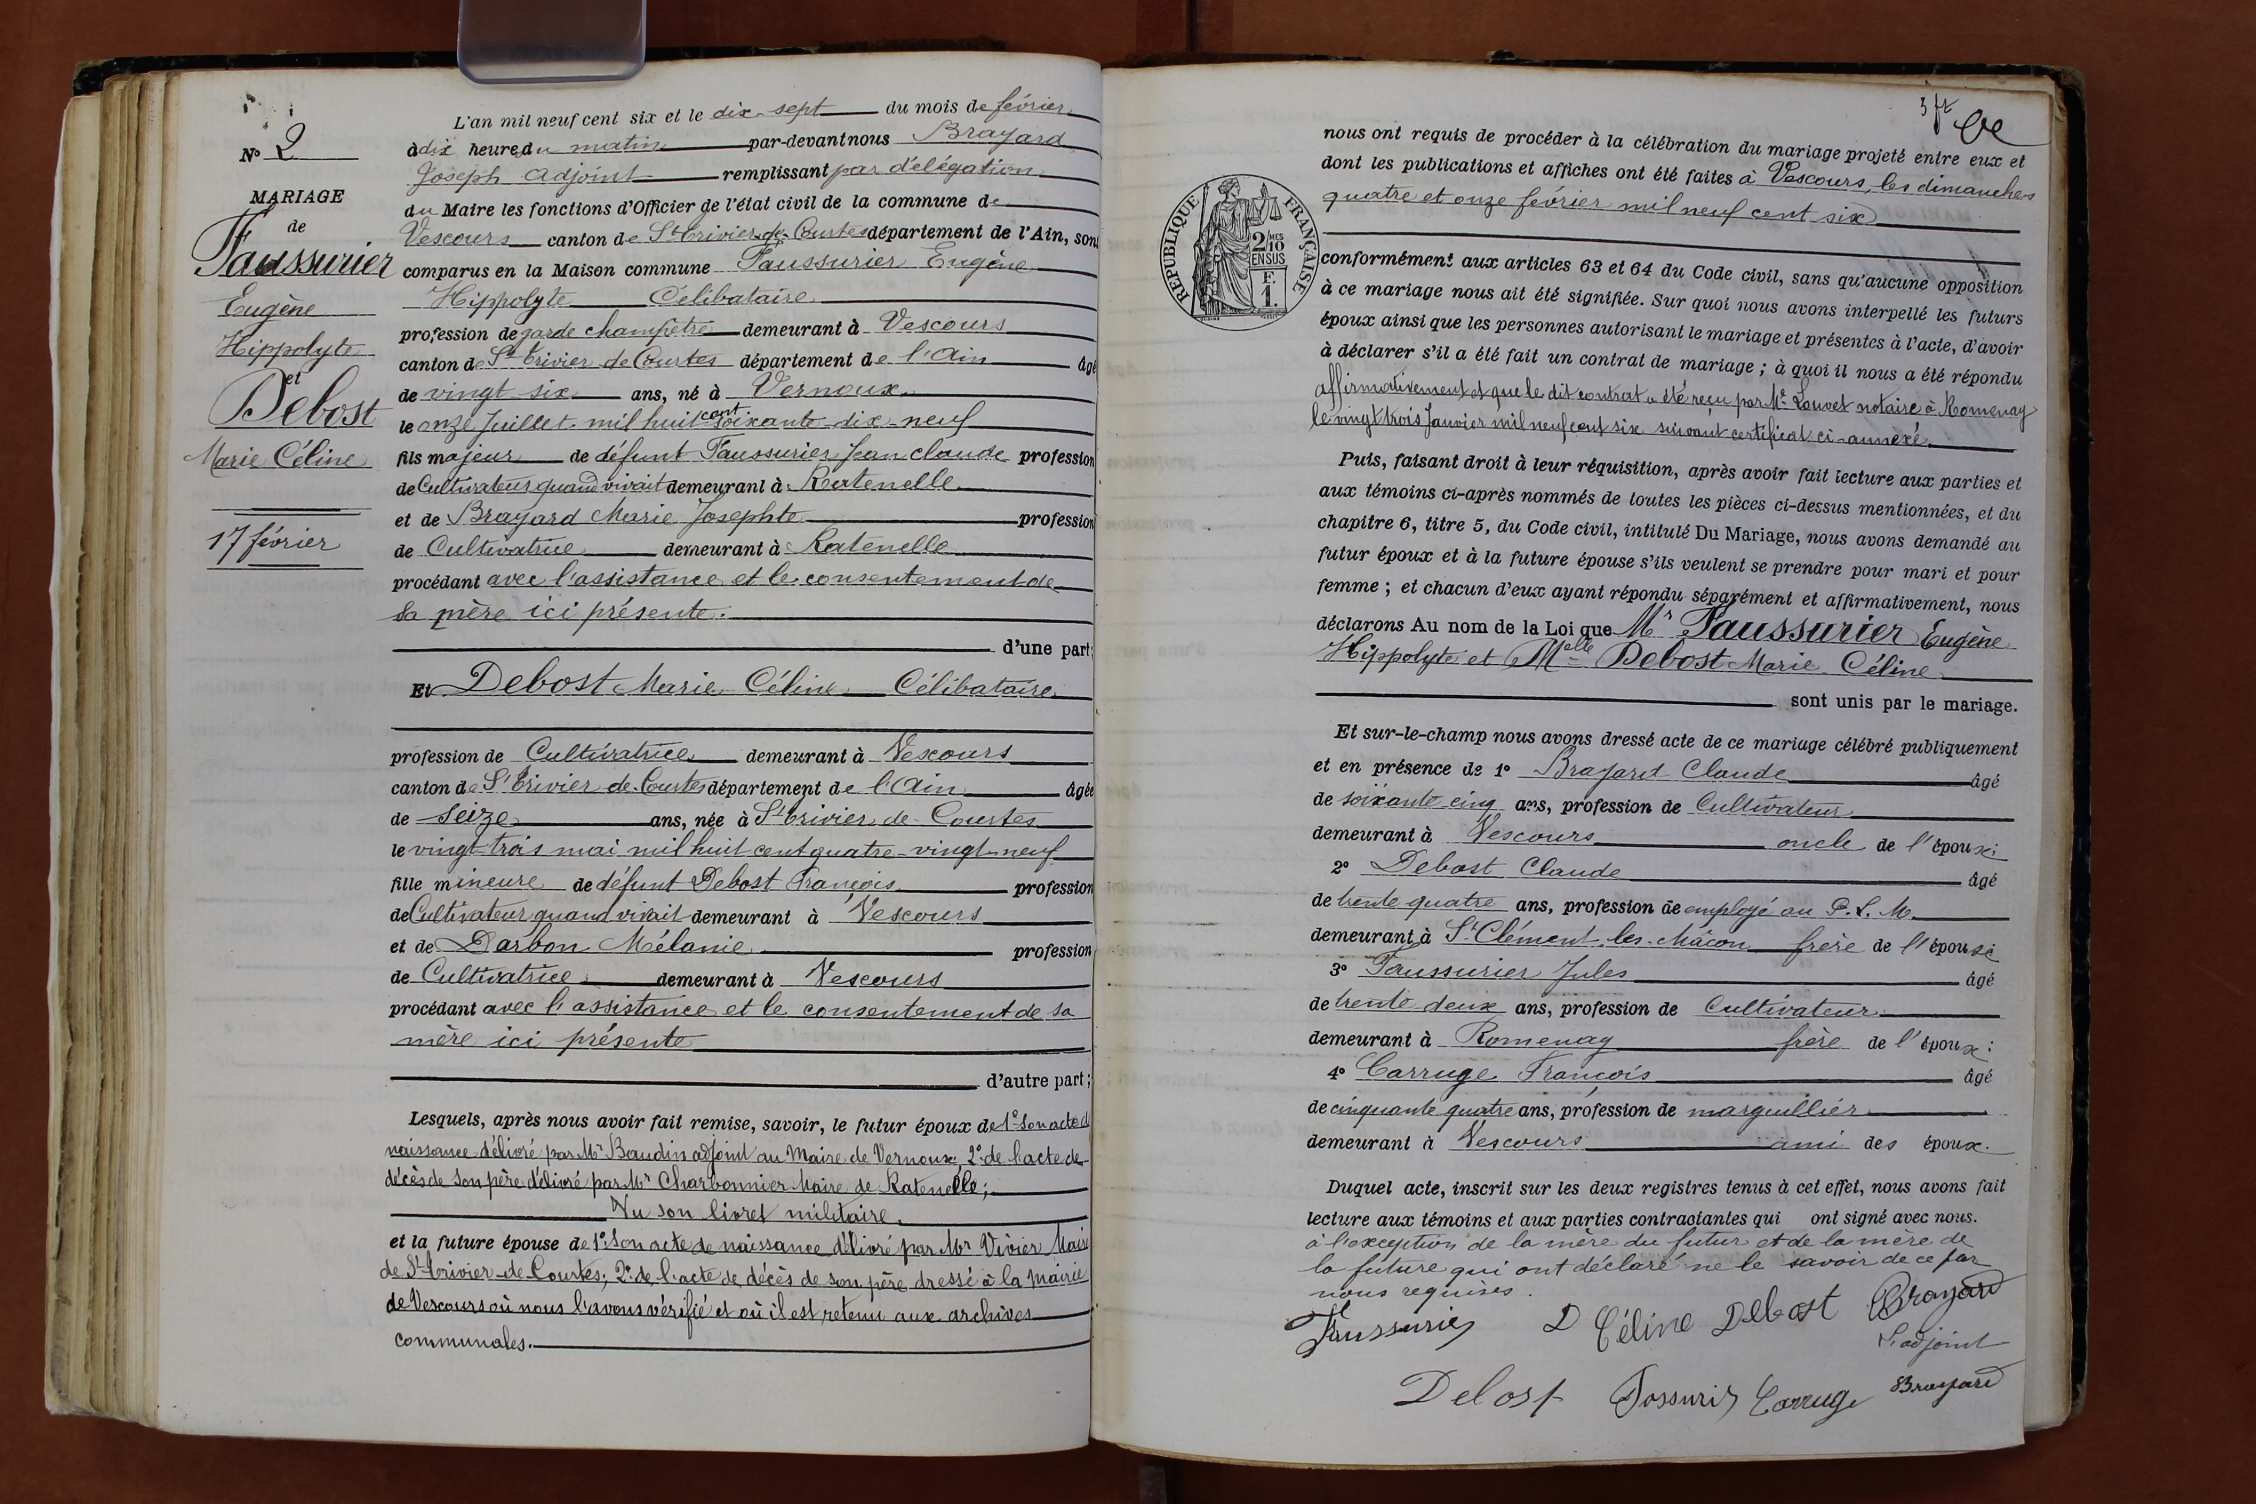 L'an mil neuf cent six et le dix-sept du mois de février
à dix heure du matin par-devant nous Brayard
Joseph adjoint remplissant par délégation
du Maire les fonctions d'Officier de l'état civil de la commune de
Vescours canton de St Trivier de Courtes département de l'Ain, sont
comparus en la Maison commune Faussurier Eugène
Hippolyte Célibataire
profession de garde champêtre demeurant à Vescours
canton de St Trivier de Courtes département de l'Ain âgé
de vingt six ans, né à Vernoux
le onze Juillet mil huit cent soixante dix-neuf
fils majeur de défunt Faussurier Jean claude profession
de Cultivateur quand vivait demeurant à Ratenelle
et de Brayard Marie Josephte profession
de Cultivatrice demeurant à Ratenelle
procédant avec l'assistance et le consentement de
sa mère ici présente.
d'une part;
Et Debost Marie Céline Célibataire
profession de Cultivatrice demeurant à Vescours
canton de St Trivier de Courtes département de l'Ain âgée
de seize ans, née à St Trivier de Courtes
le vingt trois mai mil huit cent quatre-vingt-neuf
fille mineure de défunt Debost François profession
de Cultivateur quand vivait demeurant à Vescours
et de Darbon Mélanie profession
de Cultivatrice demeurant à Vescours
procédant avec l'assistance et le consentement de sa
mère ici présente
d'autre part;
Lesquels, après nous avoir fait remise, savoir, le futur époux de 1° son acte de
naissance délivré par Mr Baudin adjoint au Maire de Vernoux; 2° de l'acte de
décès de son père délivré par Mr Charbonnier Maire de Ratenelle;
Vu son livret militaire.
et la future épouse de 1° son acte de naissance délivré par Mr Vivier Maire
de St Trivier-de-Courtes; 2° de l'acte de décès de son père dressé à la mairie
de Vescours où nous l'avons vérifié et où il est retenu aux archives
communales.
N° 2
MARIAGE
de
Faussurier
Eugène
Hippolyte
et
Debost
Marie Céline
17 février
3 ft
nous ont requis de procéder à la célébration du mariage projeté entre eux et
dont les publications et affiches ont été faites à Vescours, les dimanches
quatre et onze février mil neuf cent six
RÉPUBLIQUE FRANÇAISE
2/10 MES
EN SUS
F.
1.
conformément aux articles 63 et 64 du Code civil, sans qu'aucune opposition
à ce mariage nous ait été signifiée. Sur quoi nous avons interpellé les futurs
époux ainsi que les personnes autorisant le mariage et présentes à l'acte, d'avoir
à déclarer s'il a été fait un contrat de mariage; à quoi il nous a été répondu
affirmativement et que le dit contrat a été reçu par Me Louvet notaire à Romenay
le vingt trois Janvier mil neuf cent six suivant certificat ci-annexé.
Puis, faisant droit à leur réquisition, après avoir fait lecture aux parties et
aux témoins ci-après nommés de toutes les pièces ci-dessus mentionnées, et du
chapitre 6, titre 5, du Code civil, intitulé Du Mariage, nous avons demandé au
futur époux et à la future épouse s'ils veulent se prendre pour mari et pour
femme; et chacun d'eux ayant répondu séparément et affirmativement, nous
déclarons Au nom de la Loi que Mr Faussurier Eugène
Hippolyte et Melle Debost Marie Céline
sont unis par le mariage.
Et sur-le-champ nous avons dressé acte de ce mariage célébré publiquement
et en présence de 1° Brayard Claude âgé
de soixante cinq ans, profession de Cultivateur
demeurant à Vescours oncle de l'époux;
2° Debost Claude âgé
de trente quatre ans, profession de employé au P.L.M.
demeurant à St Clément-les-Mâcon frère de l'épouse
3° Faussurier Jules âgé
de trente deux ans, profession de Cultivateur
demeurant à Romenay frère de l'époux;
4° Carruge François âgé
de cinquante quatre ans, profession de marguillier
demeurant à Vescours ami des époux.
Duquel acte, inscrit sur les deux registres tenus à cet effet, nous avons fait
lecture aux témoins et aux parties contractantes qui ont signé avec nous.
à l'exception de la mère du futur et de la mère de
la future qui ont déclaré ne le savoir de ce par
nous requises.
Faussurier D Céline Debost Brayard
l'adjoint
Debost Fossurier Carruge Brayard